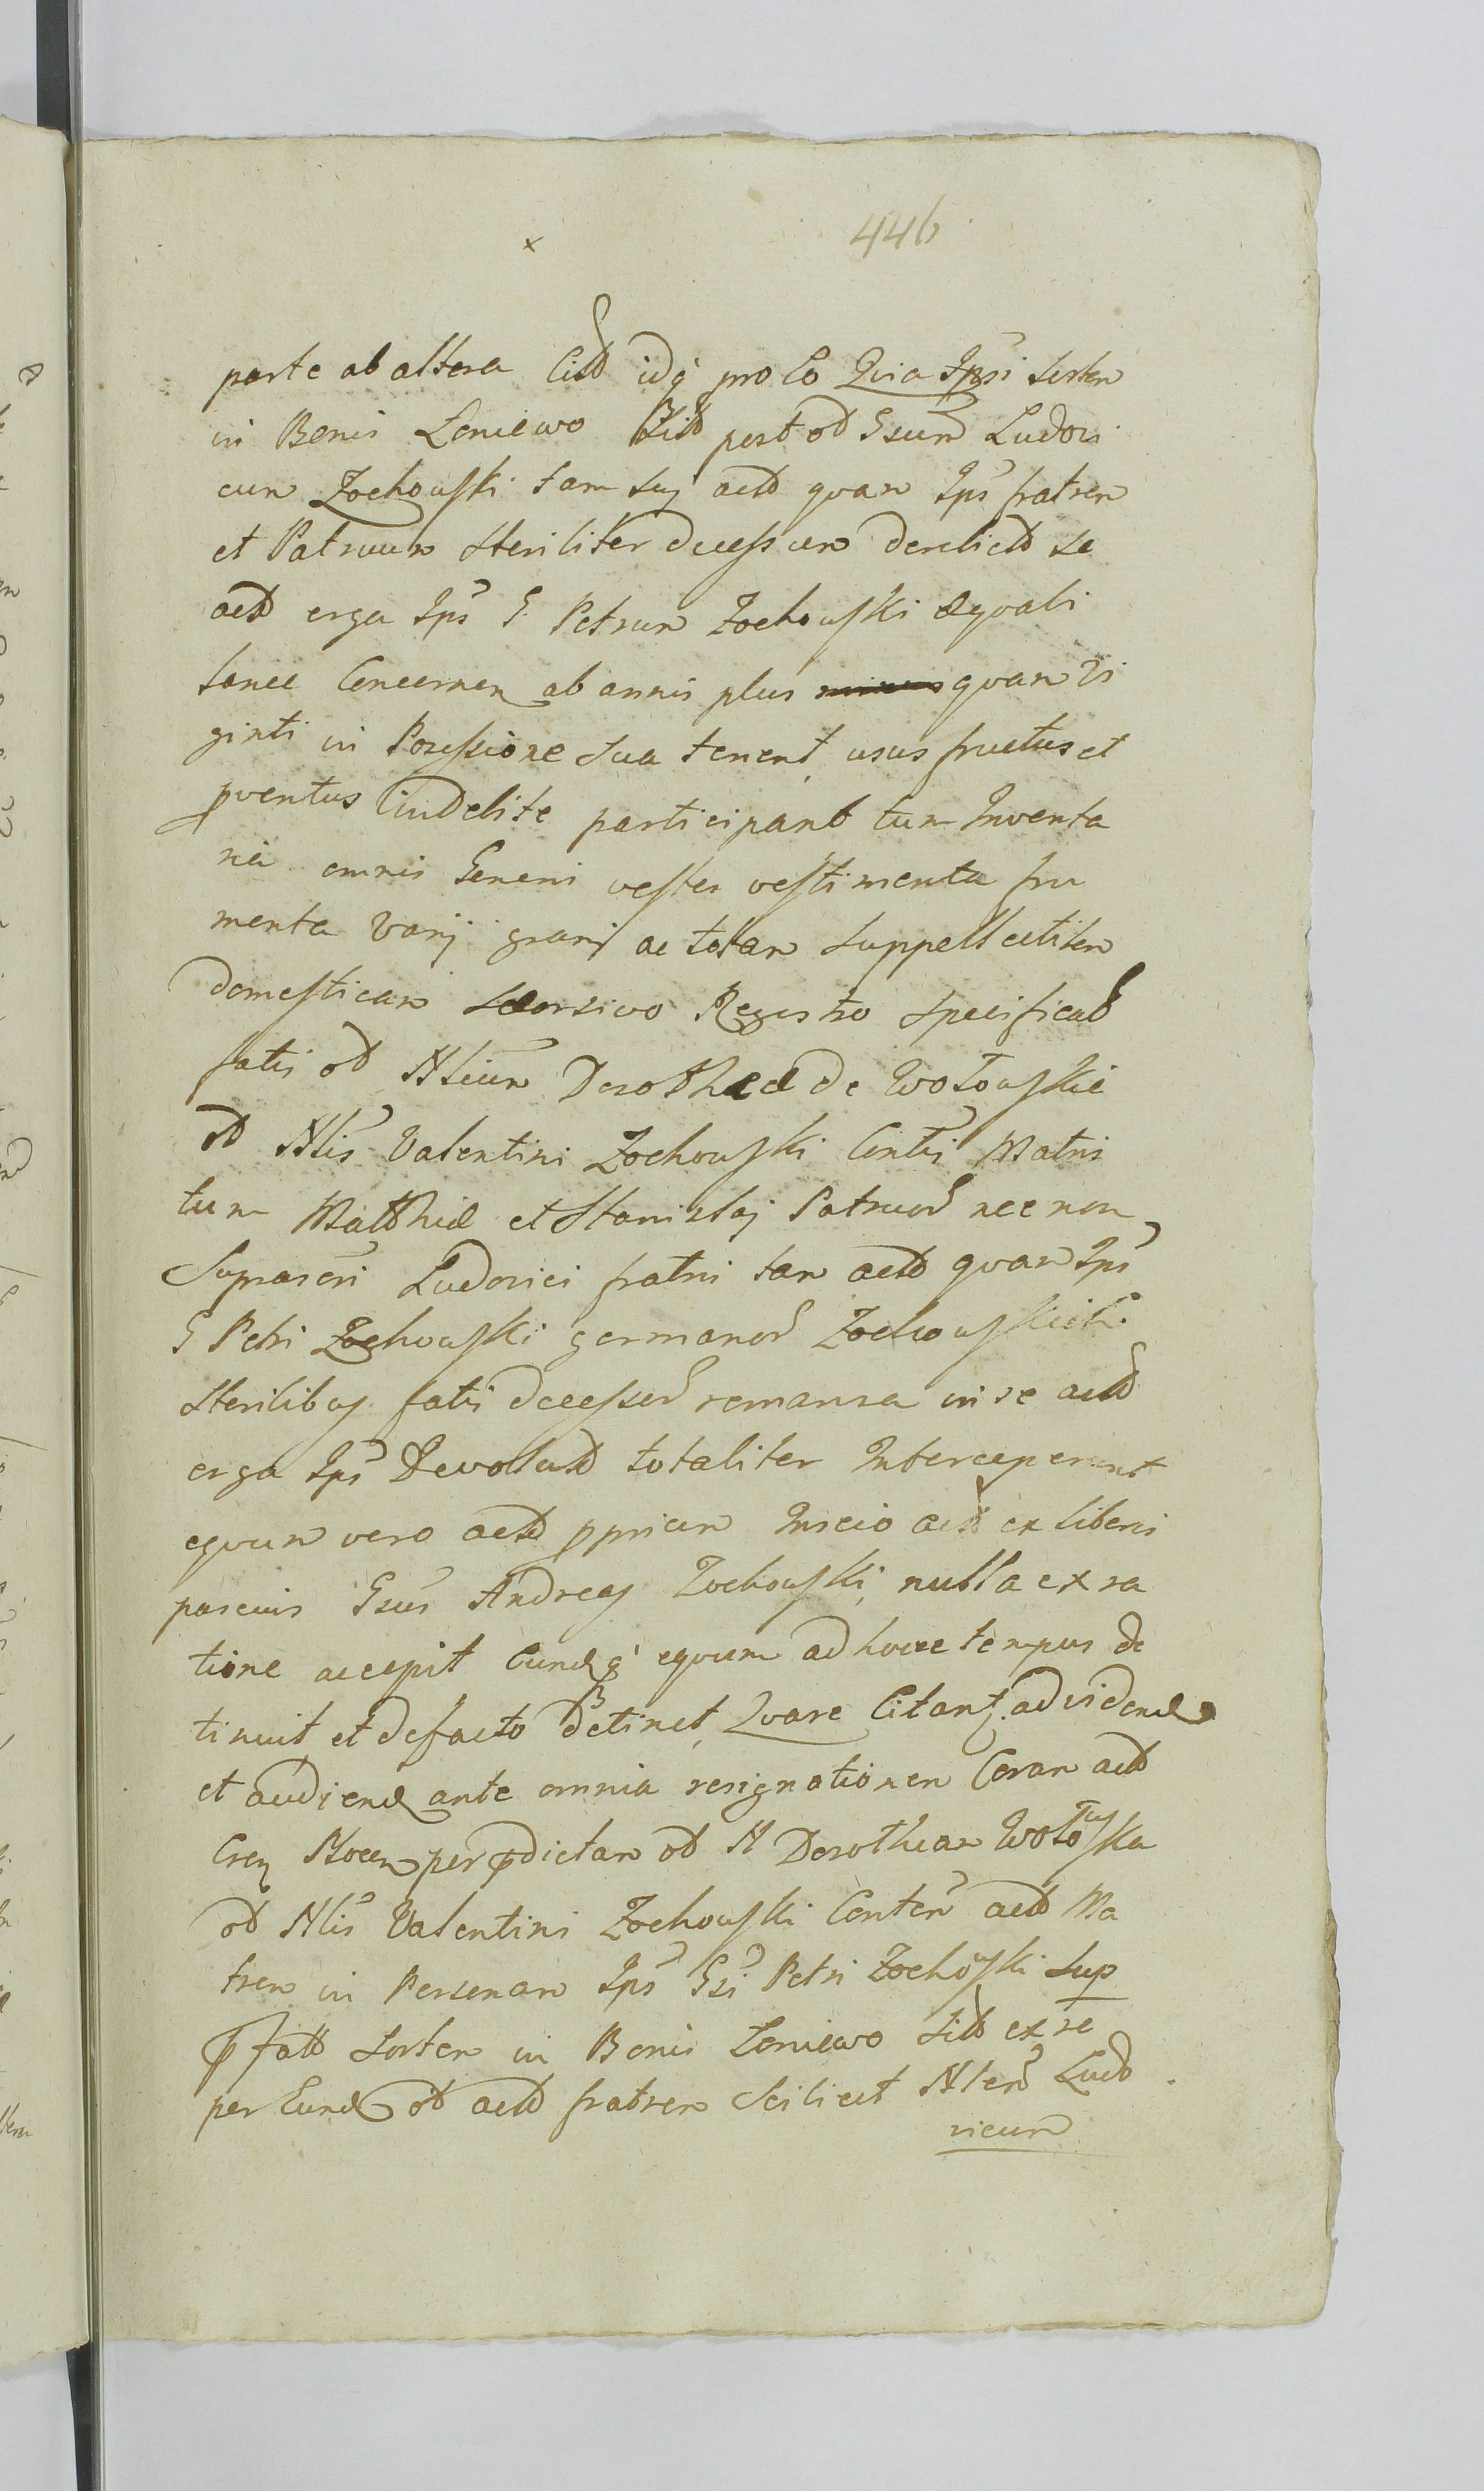 446
x
parte ab altera Citt idq̃ pro Eo Quia Ipsi sortem
in Bonis Zoniewo Sitt post od Gsum Ludovi
cum Zochowski tam suj actt quam Ips fratrem
et Patruum steriliter decessum derelictt se
actt erga Ips G. Petrum Zochowski æquali
lance Concernen ab annis plus quam Vi
ginti in Possessione sua tenent, usus fructus et
pventus Indebite participant tum Inventa
ria omnis Generis vestes vestimenta fru
menta Varij grani ac totam suppellectilem
domesticam seorsivo Regestro specificand
fatis od Nleium Dorotheæ de Wołowskie
od Nlis Valentini Zochowski Contis Matris
tum Matthiæ et Stanislaj Patruor nec non
Suprascri Ludovici fratris tam actt quam Ips
G Petri Zochowski germanor Zochowskich
sterilibus fatis decesser remansa in se actt
erga Ips Devolutt totaliter Interceperunt
equum vero actt pprium Inscio actt ex liberis
pascuis Gsus Andreas Zochowski, nulla ex ra
tione accepit Eundq̃ equum ad hocce tempus de
tinuit et defacto detinet, Quare Citantj. ad vidend
et audiend ante omnia resignationem Coram actt
per pdictam od N Dorotheam Wołowska
od Nlis Valentini Zochowski Contem actt Ma
trem in Personam Ips Gsi Petri Zochowski sup
pfatt sortem in Bonis Zoniewo sitt ex re
per Eund od actt fratrem Scilicet Nlem Ludo
vicum